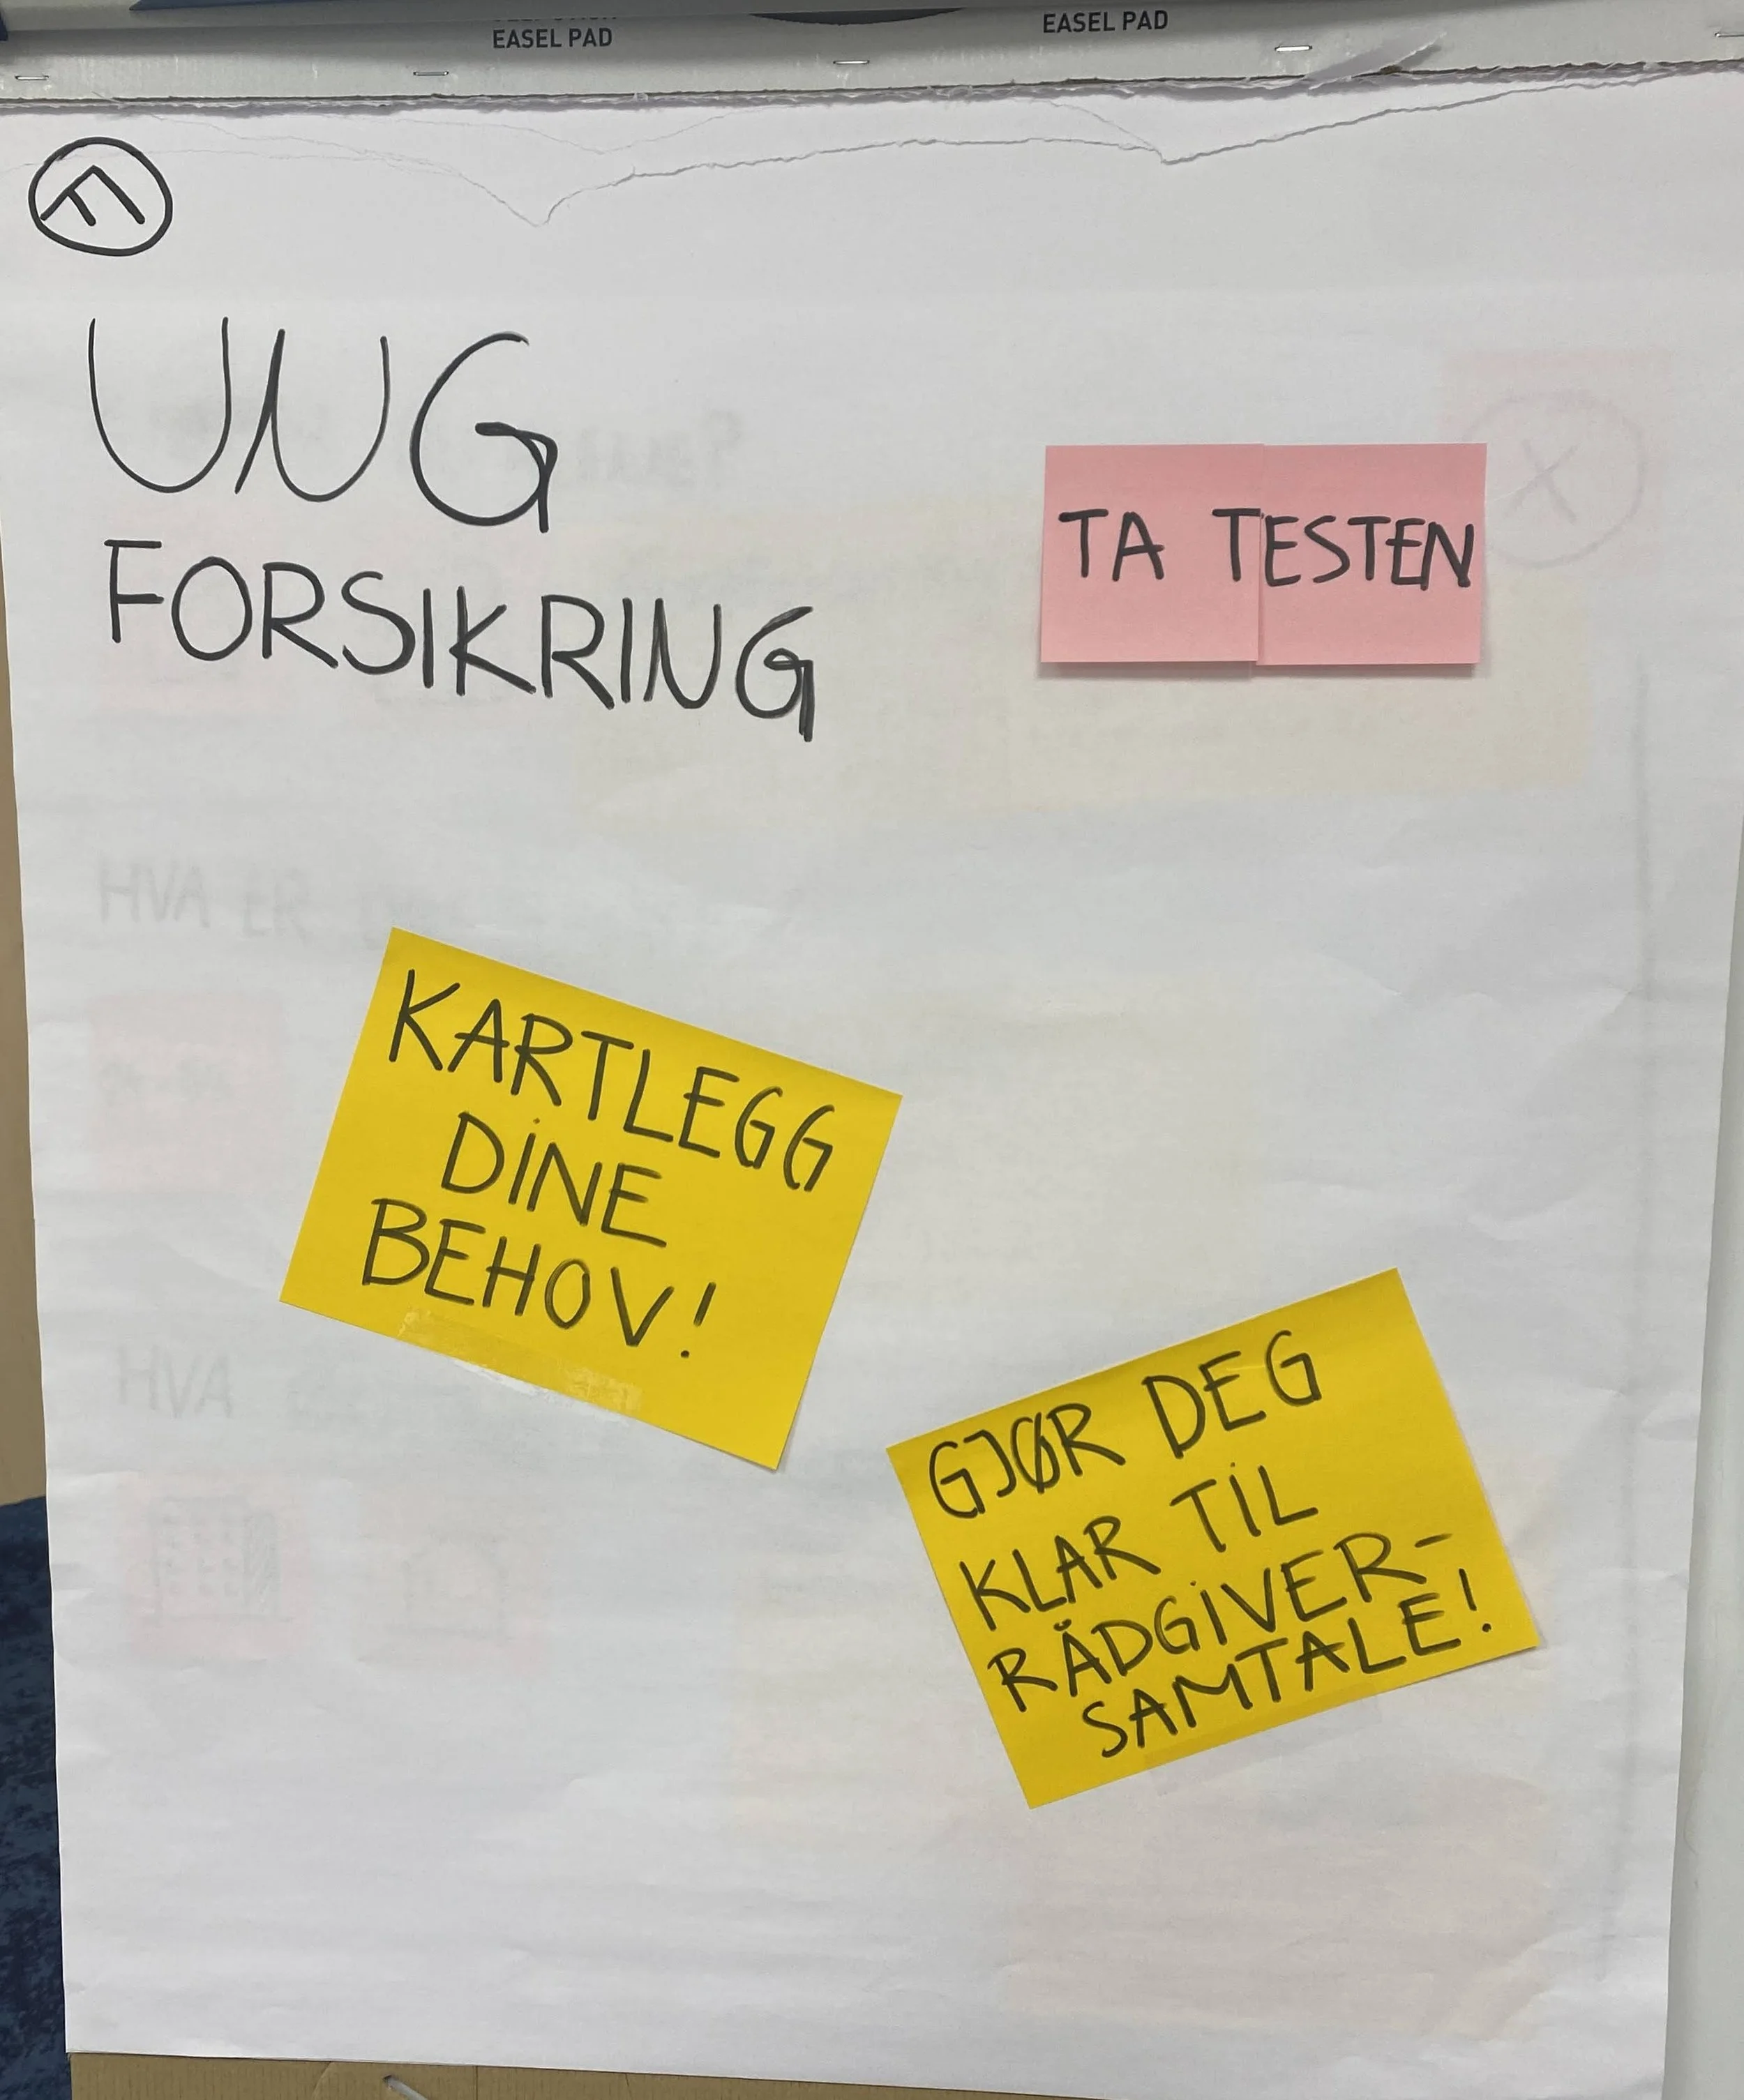 EASEL PAD
EASEL PAD
UNG
FORSIKRING
TA TESTEN
KARTLEGG
DINE
BEHOV!
GJØR DEG
KLAR TIL
RÅDGIVER-
SAMTALE!
HVA ER
HVA